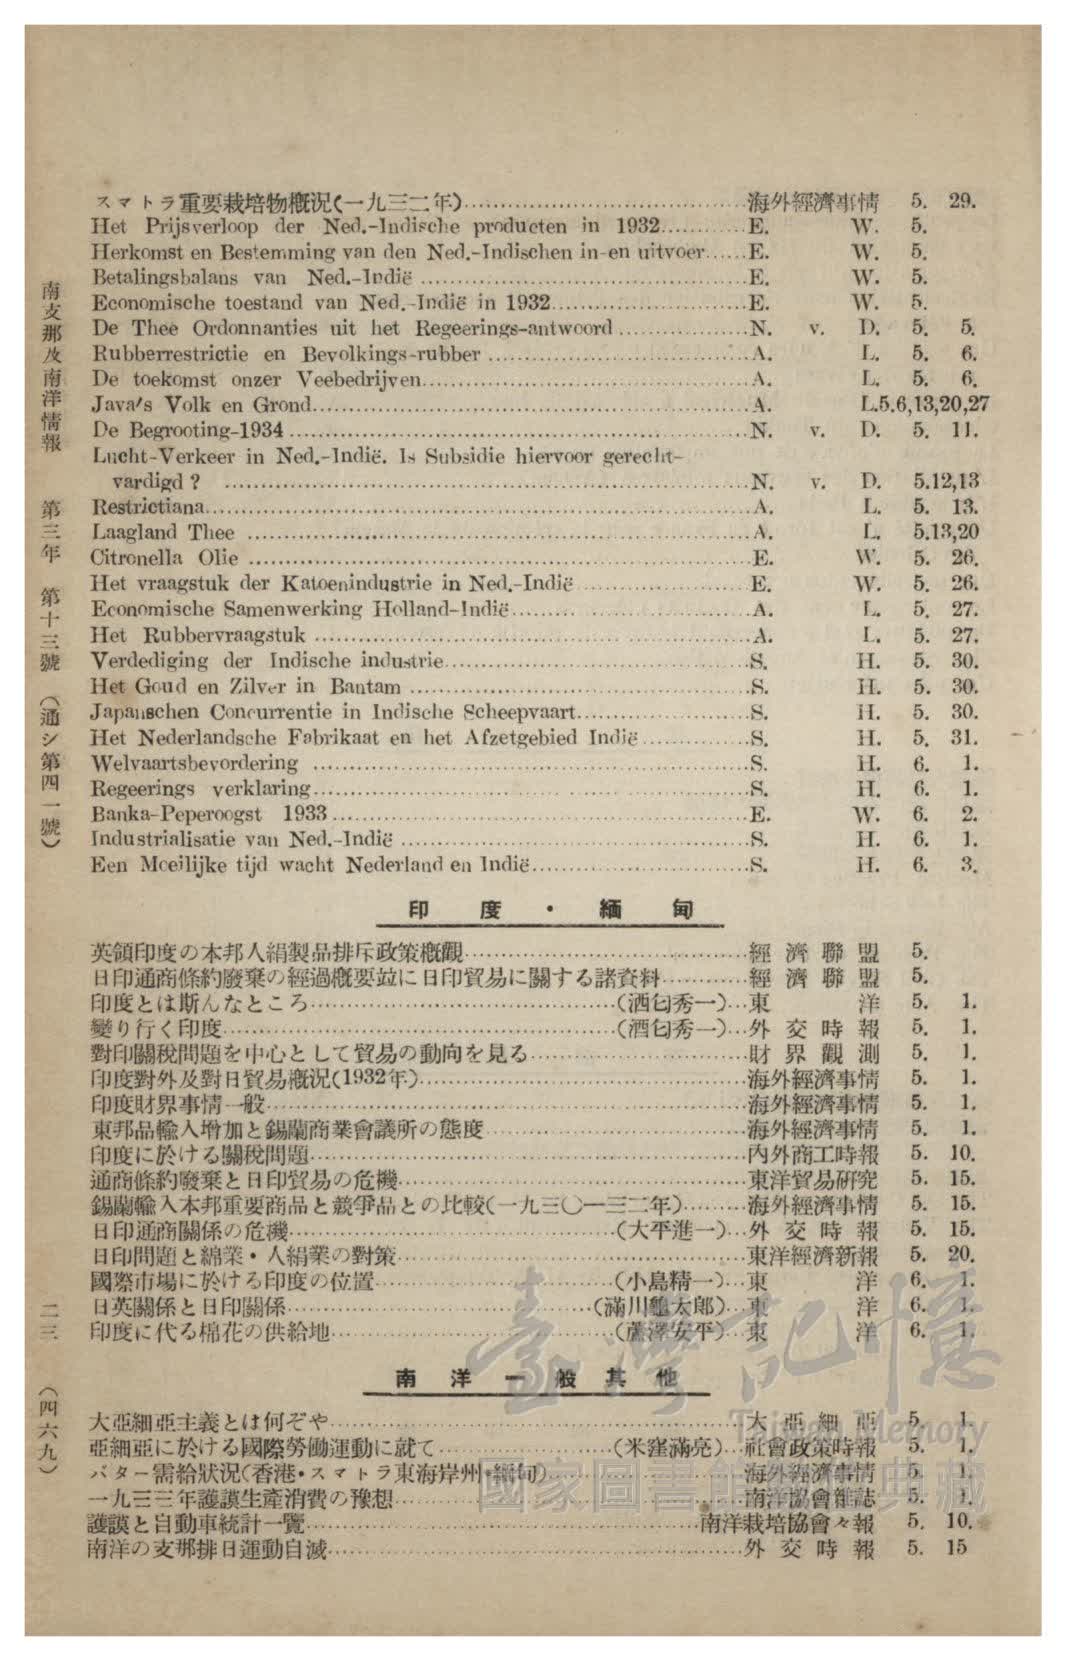 スマトラ重要栽培物槪況(一九三二年)……海外經濟事情 5. 29.
Het Prijsverloop der Ned.-Indische producten in 1932……E. W. 5.
Herkomst en Bestemming van den Ned.-Indischen in-en uitvoer……E. W. 5.
Betalingsbalans van Ned.-Indië……E. W. 5.
Economische toestand van Ned.-Indië in 1932……E. W. 5.
De Thee Ordonnanties uit het Regeerings-antwoord……N. v. D. 5. 5.
Rubberrestrictie en Bevolkings-rubber……A. L. 5. 6.
De toekomst onzer Veebedrijven……A. L. 5. 6.
Java's Volk en Grond……A. L.5.6,13,20,27
De Begrooting-1934……N. v. D. 5. 11.
Lucht-Verkeer in Ned.-Indië. Is Subsidie hiervoor gerecht-
vardigd?……N. v. D. 5.12,13
Restrictiana……A. L. 5. 13.
Laagland Thee……A. L. 5.13,20
Citronella Olie……E. W. 5. 26.
Het vraagstuk der Katoenindustrie in Ned.-Indië……E. W. 5. 26.
Economische Samenwerking Holland-Indië……A. L. 5. 27.
Het Rubbervraagstuk……A. L. 5. 27.
Verdediging der Indische industrie……S. H. 5. 30.
Het Goud en Zilver in Bantam……S. H. 5. 30.
Japanschen Concurrentie in Indische Scheepvaart……S. H. 5. 30.
Het Nederlandsche Fabrikaat en het Afzetgebied Indië……S. H. 5. 31.
Welvaartsbevordering……S. H. 6. 1.
Regeerings verklaring……S. H. 6. 1.
Banka-Peperoogst 1933……E. W. 6. 2.
Industrialisatie van Ned.-Indië……S. H. 6. 1.
Een Moeilijke tijd wacht Nederland en Indië……S. H. 6. 3.
印度・緬甸
英領印度の本邦人絹製品排斥政策槪觀……經濟聯盟 5.
日印通商條約廢棄の經過槪要竝に日印貿易に關する諸資料……經濟聯盟 5.
印度とは斯んなところ……(酒匂秀一)…東洋 5. 1.
變り行く印度……(酒匂秀一)…外交時報 5. 1.
對印關稅問題を中心として貿易の動向を見る……財界觀測 5. 1.
印度對外及對日貿易槪況(1932年)……海外經濟事情 5. 1.
印度財界事情一般……海外經濟事情 5. 1.
東邦品輸入增加と錫蘭商業會議所の態度……海外經濟事情 5. 1.
印度に於ける關稅問題……內外商工時報 5. 10.
通商條約廢棄と日印貿易の危機……東洋貿易硏究 5. 15.
錫蘭輸入本邦重要商品と競爭品との比較(一九三〇—三二年)……海外經濟事情 5. 15.
日印通商關係の危機……(大平進一)…外交時報 5. 15.
日印問題と綿業・人絹業の對策……東洋經濟新報 5. 20.
國際市場に於ける印度の位置……(小島精一)…東洋 6. 1.
日英關係と日印關係……(滿川龜太郎)…東洋 6. 1.
印度に代る棉花の供給地……(蘆澤安平)…東洋 6. 1.
南洋一般其他
大亞細亞主義とは何ぞや……大亞細亞 5. 1.
亞細亞に於ける國際勞働運動に就て……(米窪滿亮)…社會政策時報 5. 1.
バター需給狀況(香港・スマトラ東海岸州・緬甸)……海外經濟事情 5. 1.
一九三三年護謨生產消費の豫想……南洋協會雜誌 5. 1.
護謨と自動車統計一覽……南洋栽培協會々報 5. 10.
南洋の支那排日運動自滅……外交時報 5. 15
南支那及南洋情報 第三年 第十三號 (通シ第四一號)
二三
(四六九)
臺灣記憶
Taiwan Memory
國家圖書館 典藏